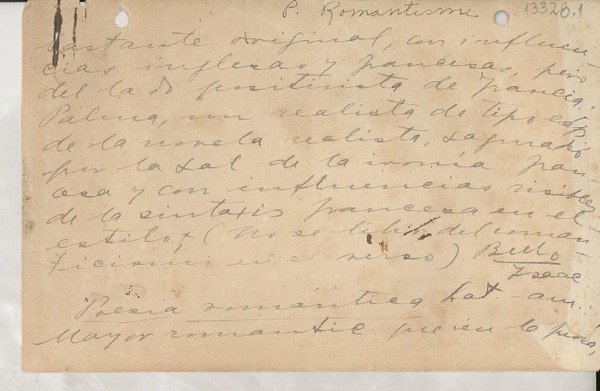 P. Romantisme 13328.1
bastante original, con influen
cias inglesas y francesas, pero
del lado positivista de Francia.
Palma, un realista de tipo esp
de la novela realista,
por la sal de la ironía
osa y con influencias visibles
de la sintaxis francesa en el
estilo, (No se del roman
ticismo en el verso) Bello
Isaac
Poesia romántica hat-am..
Mayor romantic. que en la prosa,